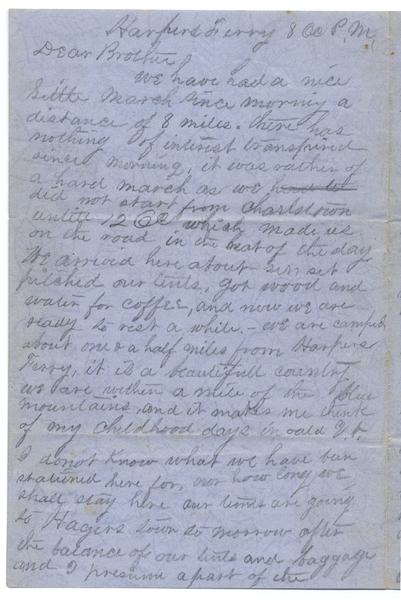 Harpers Ferry 8 Oc P.M,
Dear Brother
We have had a nice
little march since morning a
distance of 8 miles. there has
nothing of interest transpired
since morning, it was rather of
a hard march as we had to
did not start from Charlstown
untill 12 Oc which made us
on the road in the heat of the day
We arrived here about sun set
pitched our tents, got wood and
water for coffee, and now we are
ready to rest a while. - we are camped
about one & a half miles from Harpers
Ferry, it is a beautifull country
we are within a mile of the blue
mountains, and it makes me think
of my childhood days in old
I do not know what we have been
stationed here for, nor how long we
shall stay here our teams are going
to Hagers town to morrow after
the balance of our tents and baggage
and I presume a part of the